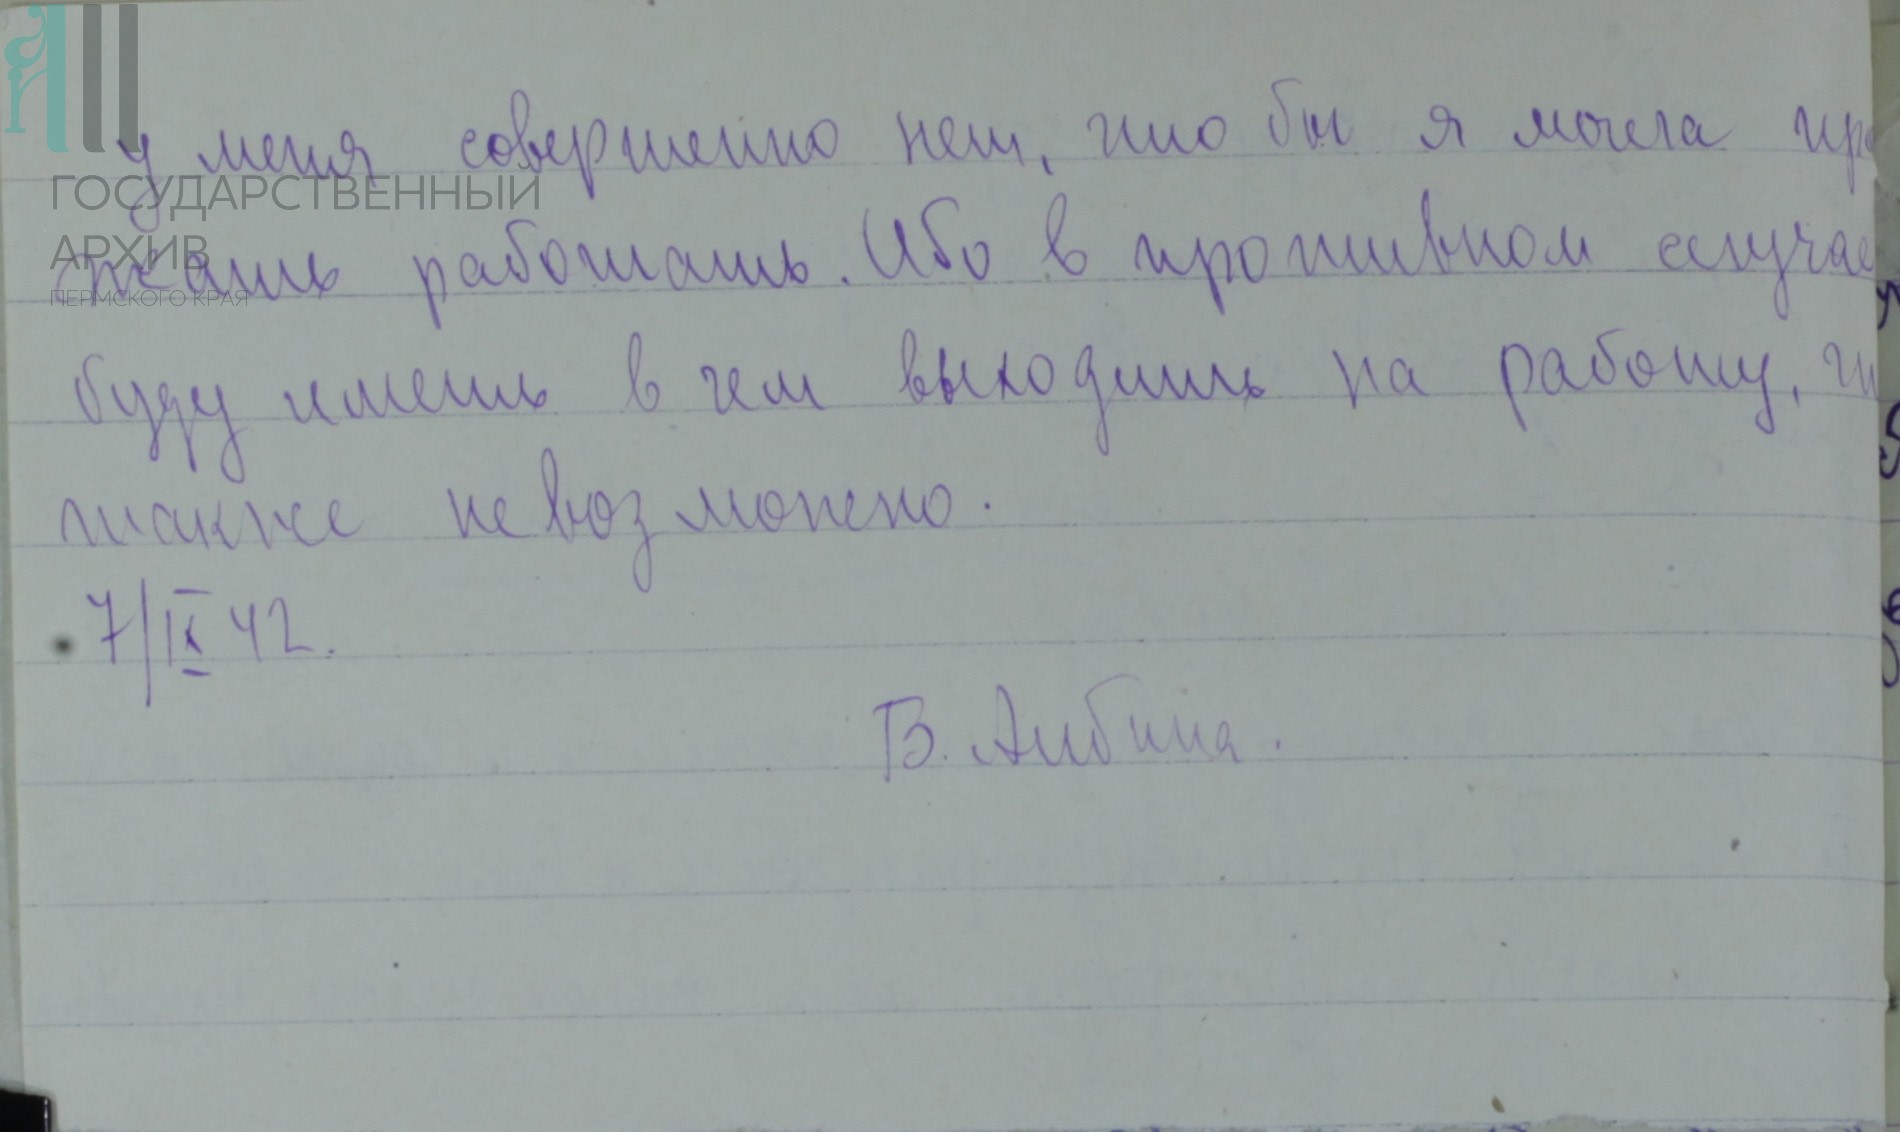 у меня совершенно нет, что бы я могла про
ГОСУДАРСТВЕННЫЙ
АРХИВ
жать работать. Ибо в противном случае
ПЕРМСКОГО КРАЯ
буду иметь в чем выходить на работу, чт
также невозможно.
7/IX 42.
В. Анбина.